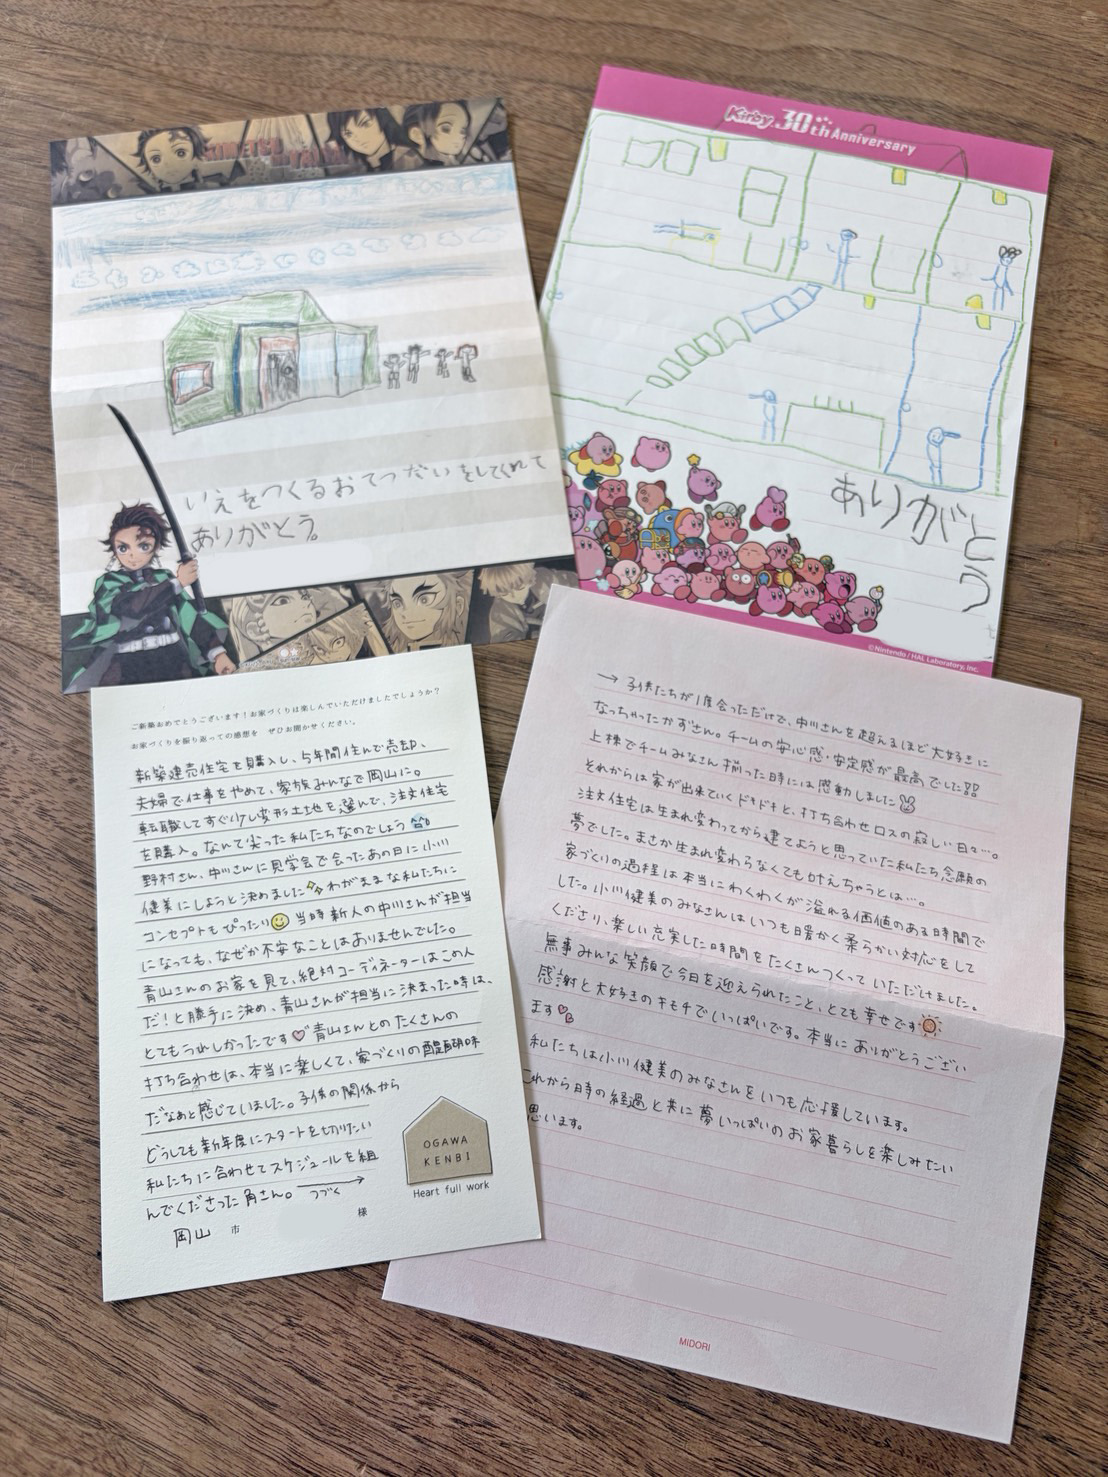 KIMETSU
いえをつくるおてつだいをしてくれて
ありがとう。
Kirby 30th Anniversary
ありがとう
©Nintendo / HAL Laboratory, Inc.
ご新築おめでとうございます！お家づくりは楽しんでいただけましたでしょうか？
お家づくりを振り返っての感想を ぜひお聞かせください。
新築建売住宅を購入し、5年間住んで売却、
夫婦で仕事をやめて、家族みんなで岡山に。
転職してすぐ少し変形土地を選んで、注文住宅
を購入。なんて尖った私たちなのでしょう
野村さん、中川さんに見学会で会ったあの日に小川
健美にしようと決めました✨わがままな私たちに
コンセプトもぴったり😊 当時新人の中川さんが担当
になっても、なぜか不安なことはありませんでした。
青山さんのお家を見て、絶対コーディネーターはこの人
だ！と勝手に決め、青山さんが担当に決まった時は、
とてもうれしかったです♡青山さんとのたくさんの
打ち合わせは、本当に楽しくて、家づくりの醍醐味
だなぁと感じていました。子供の関係から
どうしても新年度にスタートを切りたい
私たちに合わせてスケジュールを組
んでくださった角さん。つづく→
岡山 市 様
OGAWA
KENBI
Heart full work
→ 子供たちが1度会っただけで、中川さんを超えるほど大好きに
なっちゃったかずさん。チームの安心感・安定感が最高でした!!
上棟でチームみなさん揃った時には感動しました
それからは家が出来ていくドキドキと、打ち合わせロスの寂しい日々…。
注文住宅は生まれ変わってから建てようと思っていた私たち念願の
夢でした。まさか生まれ変わらなくても叶えちゃうとは…。
家づくりの過程は本当にわくわくが溢れる価値のある時間で
した。小川健美のみなさんはいつも暖かく柔らかい対応をして
くださり、楽しい充実した時間をたくさんつくっていただけました。
無事みんな笑顔で今日を迎えられたこと、とても幸せです
感謝と大好きのキモチでいっぱいです。本当にありがとうござい
ます
私たちは小川健美のみなさんをいつも応援しています。
これから時の経過と共に夢いっぱいのお家暮らしを楽しみたい
思います。
MIDORI